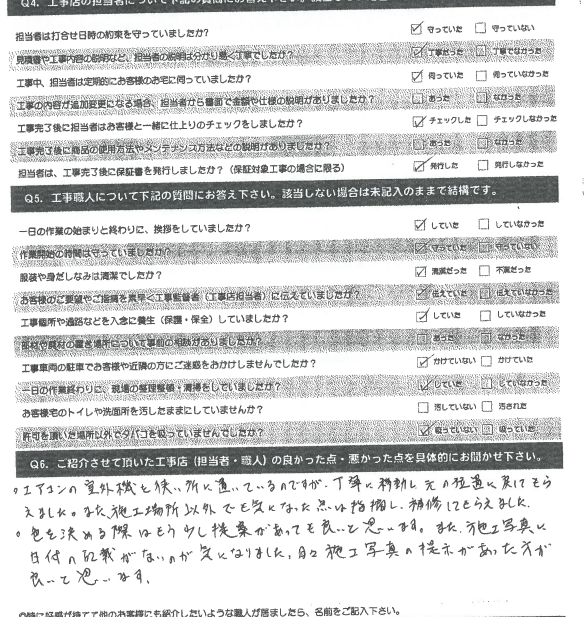 Q4. 工事店の担当者について下記の質問にお答え下さい。
担当者は打合せ日時の約束を守っていましたか? ☑ 守っていた □ 守っていない
見積書や工事内容の説明など、担当者の説明は分かり易く丁寧でしたか? ☑ 丁寧だった □ 丁寧でなかった
工事中、担当者は定期的にお客様のお宅に伺っていましたか? ☑ 伺っていた □ 伺っていなかった
工事の内容が追加変更になる場合、担当者から書面で金額や仕様の説明がありましたか? □ あった □ なかった
工事完了後に担当者はお客様と一緒に仕上りのチェックをしましたか? ☑ チェックした □ チェックしなかった
工事完了後に商品の使用方法やメンテナンス方法などの説明がありましたか? □ あった □ なかった
担当者は、工事完了後に保証書を発行しましたか?（保証対象工事の場合に限る） ☑ 発行した □ 発行しなかった
Q5. 工事職人について下記の質問にお答え下さい。該当しない場合は未記入のままで結構です。
一日の作業の始まりと終わりに、挨拶をしていましたか? ☑ していた □ していなかった
作業開始の時間は守っていましたか? ☑ 守っていた □ 守っていない
服装や身だしなみは清潔でしたか? ☑ 清潔だった □ 不潔だった
お客様のご要望やご指摘を素早く工事監督者（工事店担当者）に伝えていましたか? ☑ 伝えていた □ 伝えていなかった
工事個所や通路などを入念に養生（保護・保全）していましたか? ☑ していた □ していなかった
部材や資材の置き場所について事前の相談がありましたか? □ あった □ なかった
工事車両の駐車でお客様や近隣の方にご迷惑をおかけしませんでしたか? ☑ かけていない □ かけていた
一日の作業終わりに、現場の整理整頓・清掃をしていましたか? ☑ していた □ していなかった
お客様宅のトイレや洗面所を汚したままにしていませんか? □ 汚していない □ 汚された
許可を頂いた場所以外でタバコを吸っていませんでしたか? ☑ 吸っていない □ 吸っていた
Q6. ご紹介させて頂いた工事店（担当者・職人）の良かった点・悪かった点を具体的にお聞かせ下さい。
。エアコンの室外機を狭い所に置いているのですが、丁寧に移動し元の位置に戻してもら
えました。また、施工場所以外でも気になった点は指摘し、補修してもらえました。
。色を決める際はもう少し提案があっても良いと思います。また、施工写真に
日付の記載がないのが気になりました。日々施工写真の提示があった方が
良いと思います。
◎特に好感が持てて他のお客様にも紹介したいような職人が居ましたら、名前をご記入下さい。